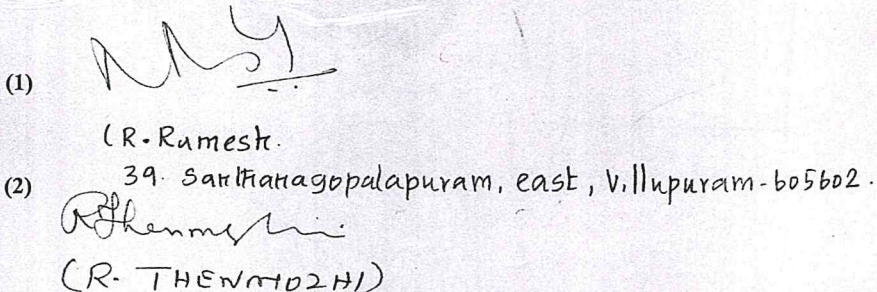 (1)
(R. Ramesh.
(2) 39. Santhanagopalapuram, east, Villupuram-605602.
R Thenmozhi
(R. THENMOZHI)